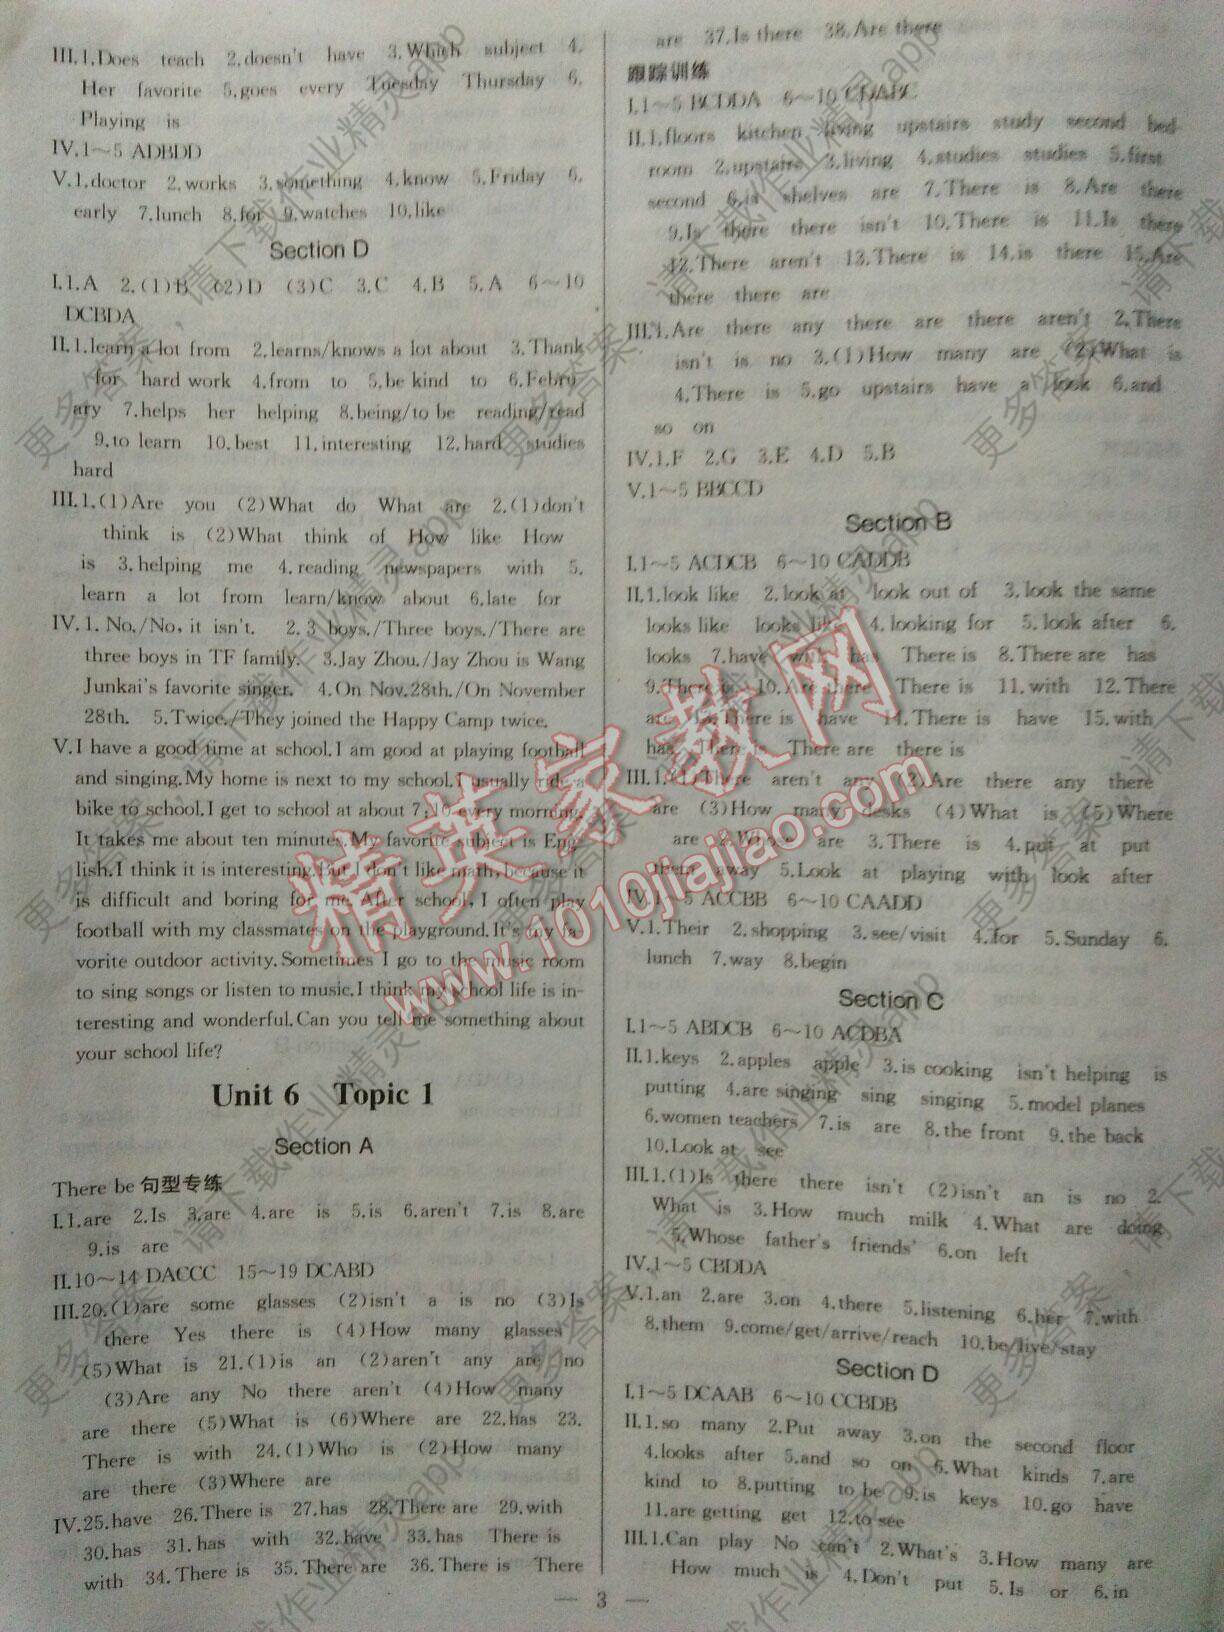 III.1.Does teach 2.doesn't have 3.Which subject 4.
Her favorite 5.goes every Tuesday Thursday 6.
Playing is
IV.1～5 ADBDD
V.1.doctor 2.works 3.something 4.know 5.Friday 6.
early 7.lunch 8.for 9.watches 10.like
Section D
I.1.A 2.(1)B (2)D (3)C 3.C 4.B 5.A 6～10
DCBDA
II.1.learn a lot from 2.learns/knows a lot about 3.Thank
for hard work 4.from to 5.be kind to 6.Febru
ary 7.helps her helping 8.being/to be reading/read
9.to learn 10.best 11.interesting 12.hard studies
hard
III.1.(1)Are you (2)What do What are 2.(1)don't
think is (2)What think of How like How
is 3.helping me 4.reading newspapers with 5.
learn a lot from learn/know about 6.late for
IV.1.No./No, it isn't. 2.3 boys./Three boys./There are
three boys in TF family. 3.Jay Zhou./Jay Zhou is Wang
Junkai's favorite singer. 4.On Nov.28th./On November
28th. 5.Twice./They joined the Happy Camp twice.
V.I have a good time at school.I am good at playing football
and singing.My home is next to my school.I usually ride a
bike to school.I get to school at about 7:10 every morning.
It takes me about ten minutes.My favorite subject is Eng-
lish.I think it is interesting.But I don't like math, because it
is difficult and boring for me.After school, I often play
football with my classmates on the playground.It's my fa-
vorite outdoor activity.Sometimes I go to the music room
to sing songs or listen to music.I think my school life is in-
teresting and wonderful.Can you tell me something about
your school life?
Unit 6 Topic 1
Section A
There be 句型专练
I.1.are 2.Is 3.are 4.are is 5.is 6.aren't 7.is 8.are
9.is are
II.10～14 DACCC 15～19 DCABD
III.20.(1)are some glasses (2)isn't a is no (3)Is
there Yes there is (4)How many glasses
(5)What is 21.(1)is an (2)aren't any are no
(3)Are any No there aren't (4)How many
are there (5)What is (6)Where are 22.has 23.
There is with 24.(1)Who is (2)How many
are there (3)Where are
IV.25.have 26.There is 27.has 28.There are 29.with
30.has 31.has with 32.have 33.has There is
with 34.There is 35.There are 36.There is There
are 37.Is there 38.Are there
跟踪训练
I.1～5 BCDDA 6～10 CDABC
II.1.floors kitchen living upstairs study second bed-
room 2.upstairs 3.living 4.studies studies 5.first
second 6.is shelves are 7.There is 8.Are there
9.Is there there isn't 10.There is 11.Is there
12.There aren't 13.There is 14.is there 15.Are
there there are
III.1.Are there any there are there aren't 2.There
isn't is no 3.(1)How many are (2)What is
4.There is 5.go upstairs have a look 6.and
so on
IV.1.F 2.G 3.E 4.D 5.B
V.1～5 BBCCD
Section B
I.1～5 ACDCB 6～10 CADDB
II.1.look like 2.look at look out of 3.look the same
looks like looks like 4.looking for 5.look after 6.
looks 7.have with has There is 8.There are has
9.There is 10.Are there There is 11.with 12.There
are 13.There is have 14.There is have 15.with
has There is There are there is
III.1.(1)There aren't any (2)Are there any there
are (3)How many desks (4)What is (5)Where
are 2.Whose are 3.There is 4.put at put
them away 5.Look at playing with look after
IV.1～5 ACCBB 6～10 CAADD
V.1.Their 2.shopping 3.see/visit 4.for 5.Sunday 6.
lunch 7.way 8.begin
Section C
I.1～5 ABDCB 6～10 ACDBA
II.1.keys 2.apples apple 3.is cooking isn't helping is
putting 4.are singing sing singing 5.model planes
6.women teachers 7.is are 8.the front 9.the back
10.Look at see
III.1.(1)Is there there isn't (2)isn't an is no 2.
What is 3.How much milk 4.What are doing
5.Whose father's friends' 6.on left
IV.1～5 CBDDA
V.1.an 2.are 3.on 4.there 5.listening 6.her 7.with
8.them 9.come/get/arrive/reach 10.be/live/stay
Section D
I.1～5 DCAAB 6～10 CCBDB
II.1.so many 2.Put away 3.on the second floor
4.looks after 5.and so on 6.What kinds 7.are
kind to 8.putting to be 9.is keys 10.go have
11.are getting get 12.to see
III.1.Can play No can't 2.What's 3.How many are
How much is 4.Don't put 5.Is or 6.in
— 3 —
精英家教网
www.1010jiajiao.com
更多答案，请下载作业精灵app